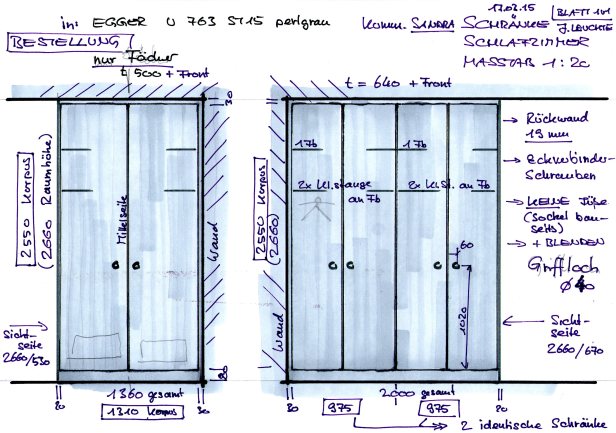 in: EGGER U 763 ST15 perlgrau
Komm. SANDRA
17.03.15
BLATT 1v1
SCHRÄNKE
J. LEUCHTE
SCHLAFZIMMER
MASSTAB 1:20
BESTELLUNG
nur Fächer
t 500 + Front
t = 640 + Front
30
2550 Korpus
(2660 Raumhöhe)
Mittelseite
Wand
2550 Korpus
(2660)
Wand
1 Fb
1 Fb
2x Kl.stange
an Fb
2x Kl.St. an Fb
60
1020
→ Rückwand
19 mm
→ Eckverbinder
Schrauben
→ KEINE Füße
(Sockel bau-
seits)
→ + BLENDEN
Griffloch
Ø 40
Sicht-
seite
2660/530
Sicht-
seite
2660/670
80
20
1360 gesamt
1310 Korpus
30
30
975
2000 gesamt
975
20
2 identische Schränke